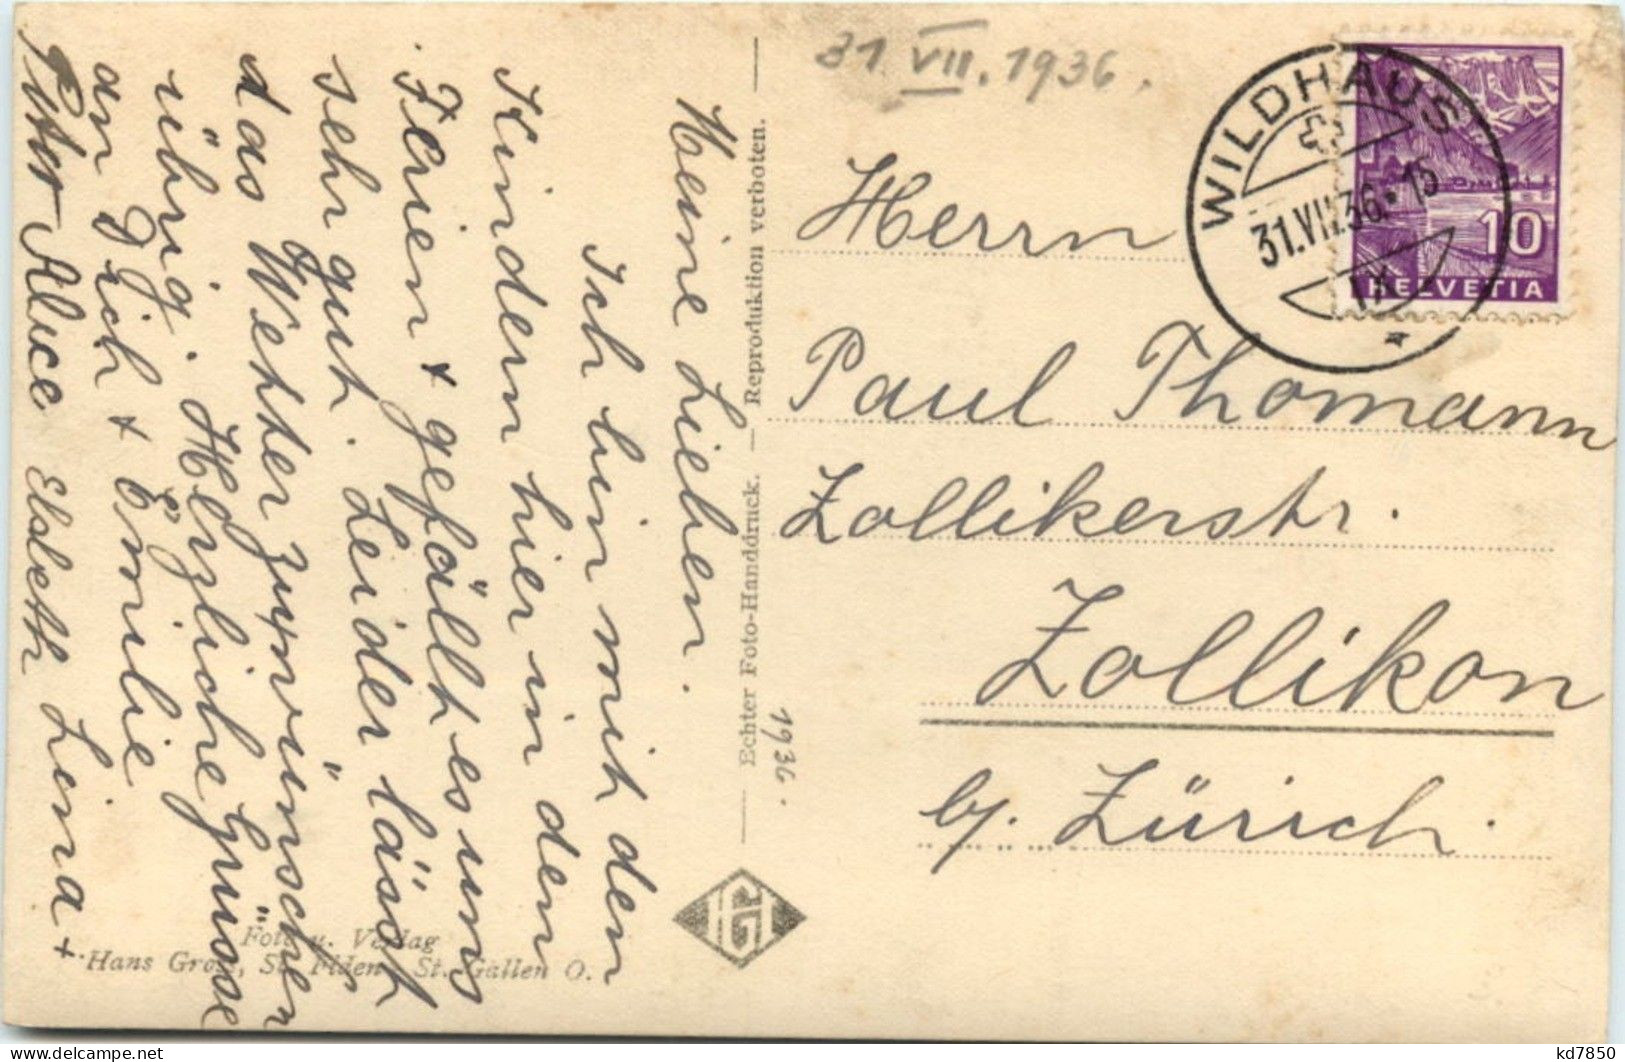 31 VII. 1936.
WILDHAUS
31.VII.36.15
IX
10
HELVETIA
Herrn
Paul Thomann
Zollikerstr.
Zollikon
b/. Zürich.
Meine Lieben.
Ich bin mit den
Kindern hier in den
Ferien + gefällt es uns
sehr gut. Leider lässt
das Wetter zu wünschen
übrig. Herzliche Grüsse
an Dich + Emilie
Alice Elsbeth Leina +
Echter Foto-Handdruck. — Reproduktion verboten.
1936.
HG
Foto u. Verlag
Hans Gross, St. Fiden - St. Gallen O.
kd7850